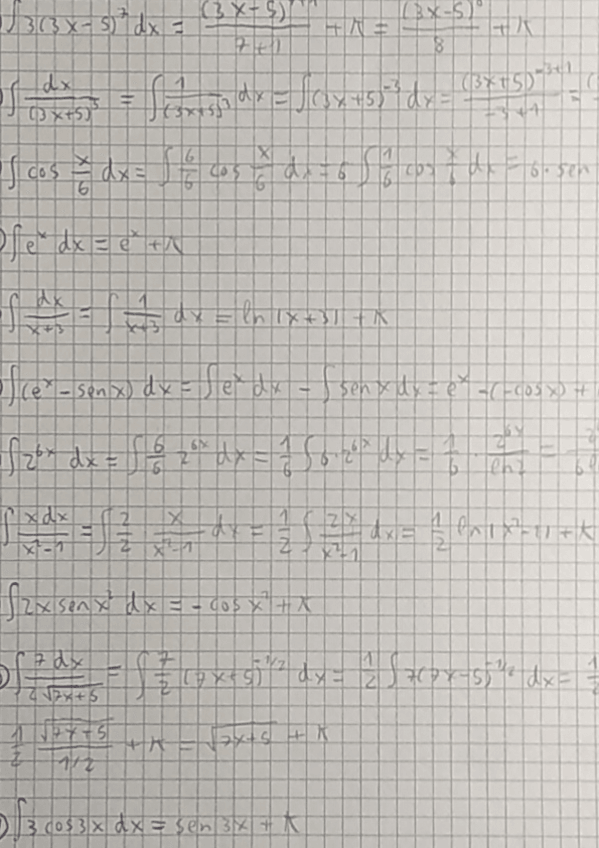 ∫3(3x-5)⁷dx = (3x-5) / 7+1 + K = (3x-5)⁸ / 8 + K
∫dx/(3x+5)³ = ∫1/(3x+5)³ dx = ∫(3x+5)⁻³ dx = (3x+5)⁻³⁺¹ / -3+1 = (
∫cos x/6 dx = ∫6/6 cos x/6 dx = 6 ∫1/6 cos x/6 dx = 6· sen
)∫eˣ dx = eˣ + K
∫dx/x+3 = ∫1/x+3 dx = ln|x+3| + K
)∫(eˣ - sen x) dx = ∫eˣ dx - ∫sen x dx = eˣ -(-cos x) +
∫2⁶ˣ dx = ∫6/6 2⁶ˣ dx = 1/6 ∫6·2⁶ˣ dx = 1/6 · 2⁶ˣ/ln2 =
∫x dx/x²-1 = ∫2/2 · x/x²-1 dx = 1/2 ∫2x/x²-1 dx = 1/2 ln|x²-1| + K
∫2x sen x² dx = -cos x² + K
)∫7 dx/2√7x+5 = ∫7/2 (7x+5)⁻¹/² dx = 1/2 ∫7(7x-5)⁻¹/² dx = 1/2
1/2 √7x+5 / 1/2 + K = √7x+5 + K
)∫3 cos 3x dx = sen 3x + K